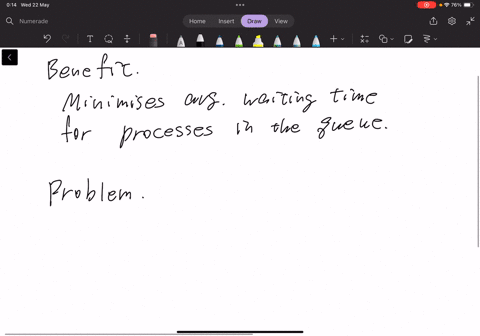 0:14 Wed 22 May
76%
Numerade
Home Insert Draw View
Benefit.
Minimises avg. waiting time
for processes in the queue.
Problem.